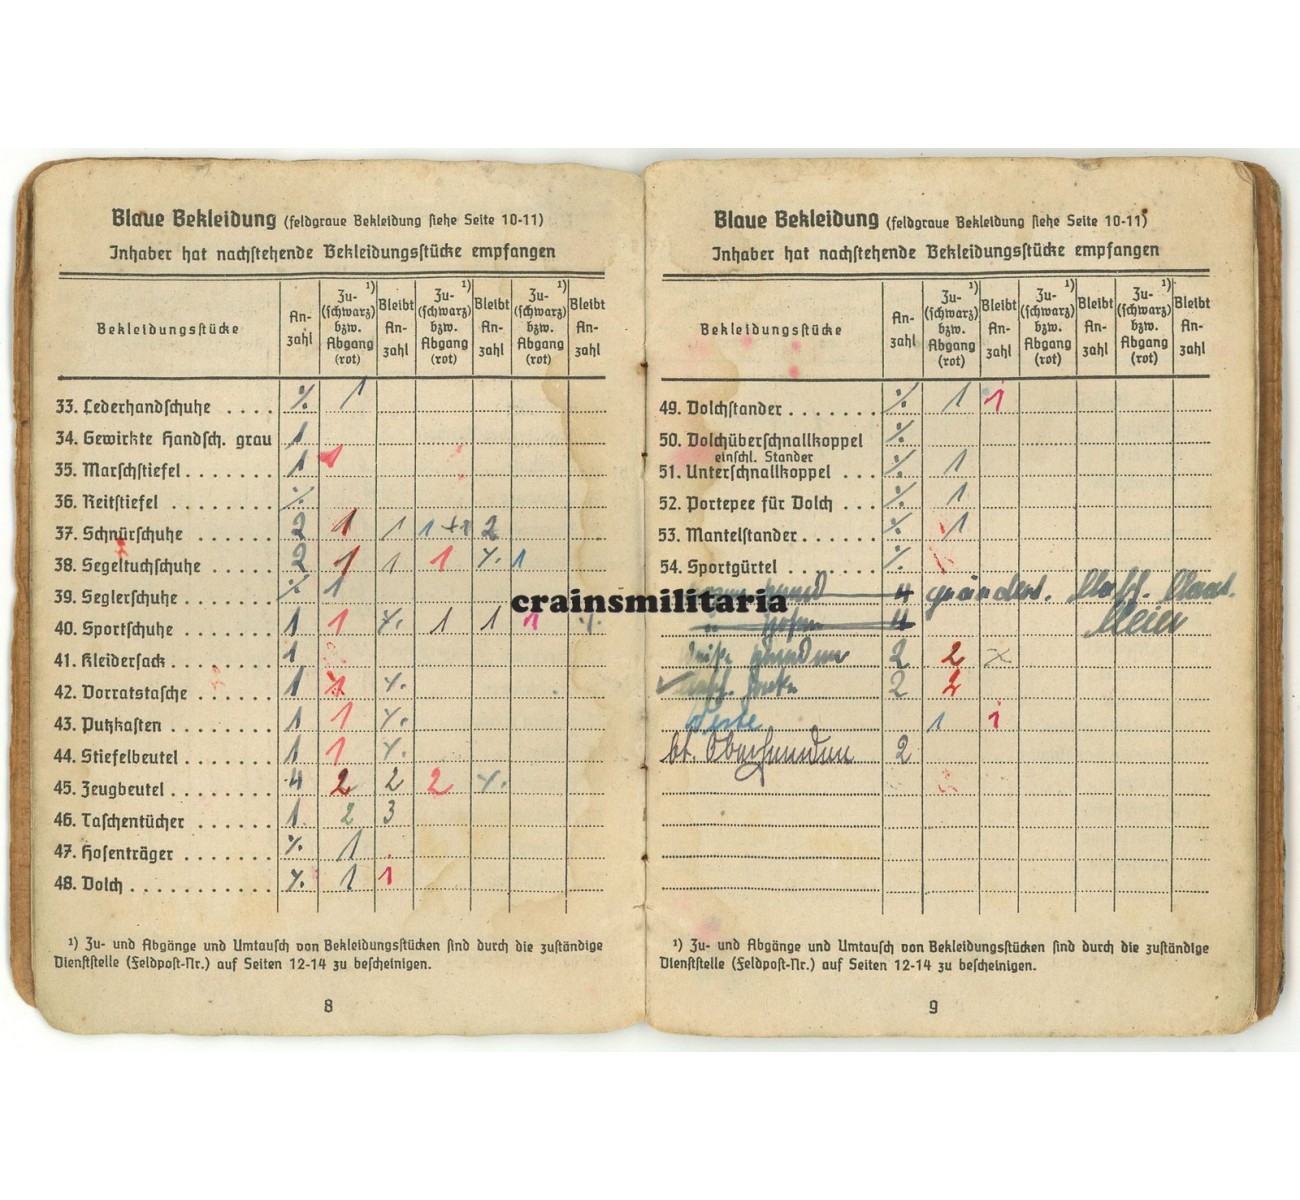 Blaue Bekleidung (feldgraue Bekleidung siehe Seite 10-11)
Inhaber hat nachstehende Bekleidungsstücke empfangen
Bekleidungsstücke An-zahl Zu- (schwarz) bzw. Abgang (rot) ¹) Bleibt An-zahl Zu- (schwarz) bzw. Abgang (rot) ¹) Bleibt An-zahl Zu- (schwarz) bzw. Abgang (rot) ¹) Bleibt An-zahl
33. Lederhandschuhe . . . . ⁒ 1
34. Gewirkte Handsch. grau 1
35. Marschstiefel . . . . . . . 1 1
36. Reitstiefel . . . . . . . . . ⁒
37. Schnürschuhe . . . . . . 2 1 1 1 +1 2
38. Segeltuchschuhe . . . . . 2 1 1 1 ⁒ 1
39. Seglerschuhe . . . . . . . ⁒ 1
40. Sportschuhe . . . . . . . 1 1 ⁒ 1 1 1 ⁒
41. Kleidersack . . . . . . . . 1
42. Vorratstasche . . . . . . 1 1 ⁒
43. Putzkasten . . . . . . . . 1 1 ⁒
44. Stiefelbeutel . . . . . . . 1 1 ⁒
45. Zeugbeutel . . . . . . . . 4 2 2 2 ⁒
46. Taschentücher . . . . . . 1 2 3
47. Hosenträger . . . . . . . ⁒ 1
48. Dolch . . . . . . . . . . . ⁒ 1 1
¹) Zu- und Abgänge und Umtausch von Bekleidungsstücken sind durch die zuständige
Dienststelle (Feldpost-Nr.) auf Seiten 12-14 zu bescheinigen.
8
Blaue Bekleidung (feldgraue Bekleidung siehe Seite 10-11)
Inhaber hat nachstehende Bekleidungsstücke empfangen
Bekleidungsstücke An-zahl Zu- (schwarz) bzw. Abgang (rot) ¹) Bleibt An-zahl Zu- (schwarz) bzw. Abgang (rot) ¹) Bleibt An-zahl Zu- (schwarz) bzw. Abgang (rot) ¹) Bleibt An-zahl
49. Dolchstander . . . . . . . ⁒ 1 1
50. Dolchüberschnallkoppel ⁒
einschl. Stander
51. Unterschnallkoppel . . . ⁒ 1
52. Portepee für Dolch . . . ⁒ 1
53. Mantelstander . . . . . . ⁒ 1
54. Sportgürtel . . . . . . . ⁒
4 geändert.
" Hosen 4 Meier
2 2
2 2
Weste 1 1
bl. Oberhemden 2
¹) Zu- und Abgänge und Umtausch von Bekleidungsstücken sind durch die zuständige
Dienststelle (Feldpost-Nr.) auf Seiten 12-14 zu bescheinigen.
9
crainsmilitaria